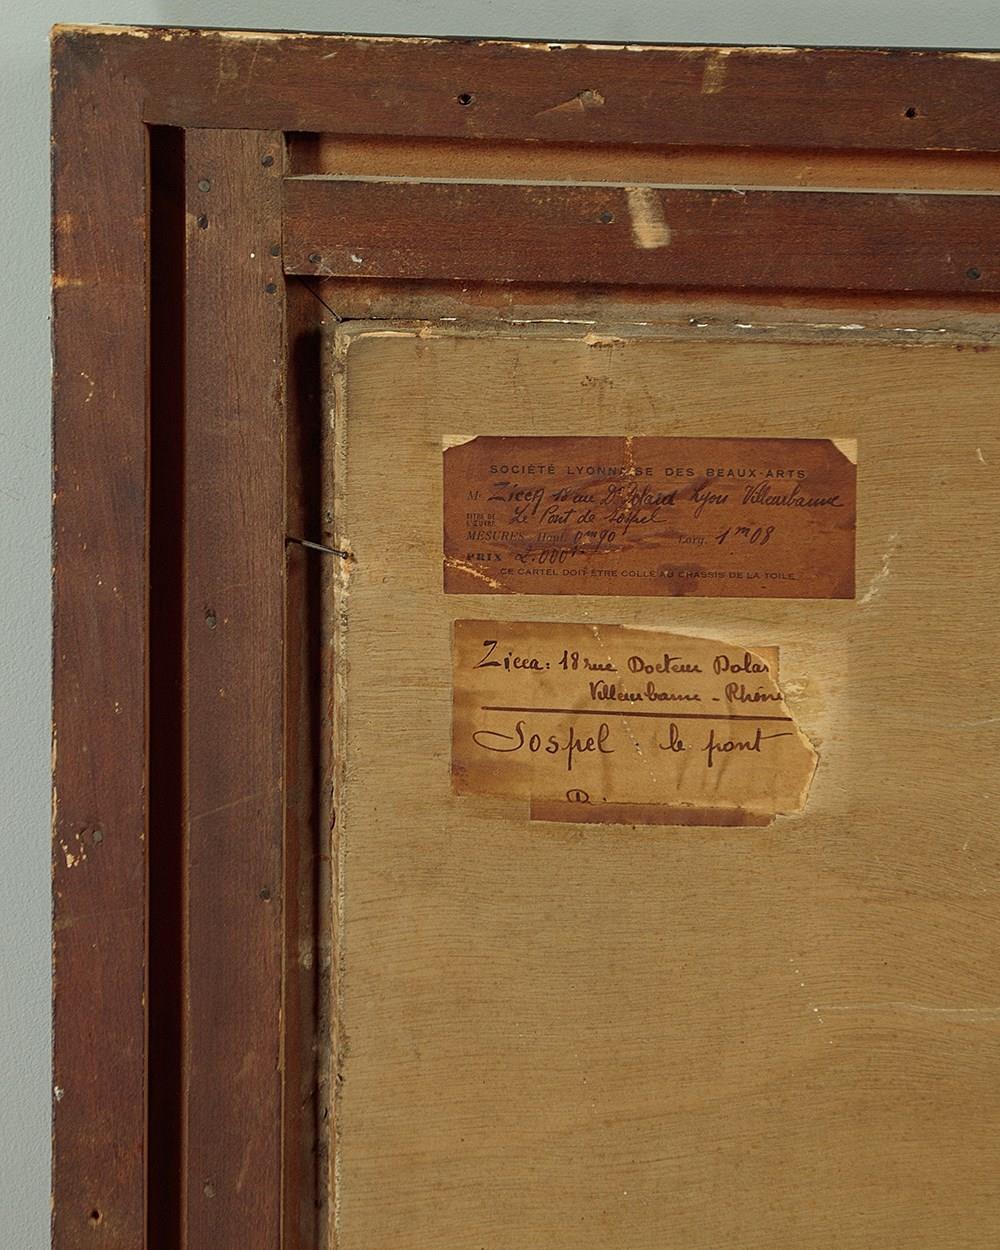 SOCIÉTÉ LYONNAISE DES BEAUX-ARTS
M. Zicca 18 rue Dr Dolard Lyon Villeurbanne
TITRE DE L'ŒUVRE Le Pont de Sospel
MESURES Haut. 0m90 Larg. 1m08
PRIX 2.000
CE CARTEL DOIT ÊTRE COLLÉ AU CHASSIS DE LA TOILE
Zicca: 18 rue Docteur Dolar
Villeurbanne - Rhône
Sospel : le pont